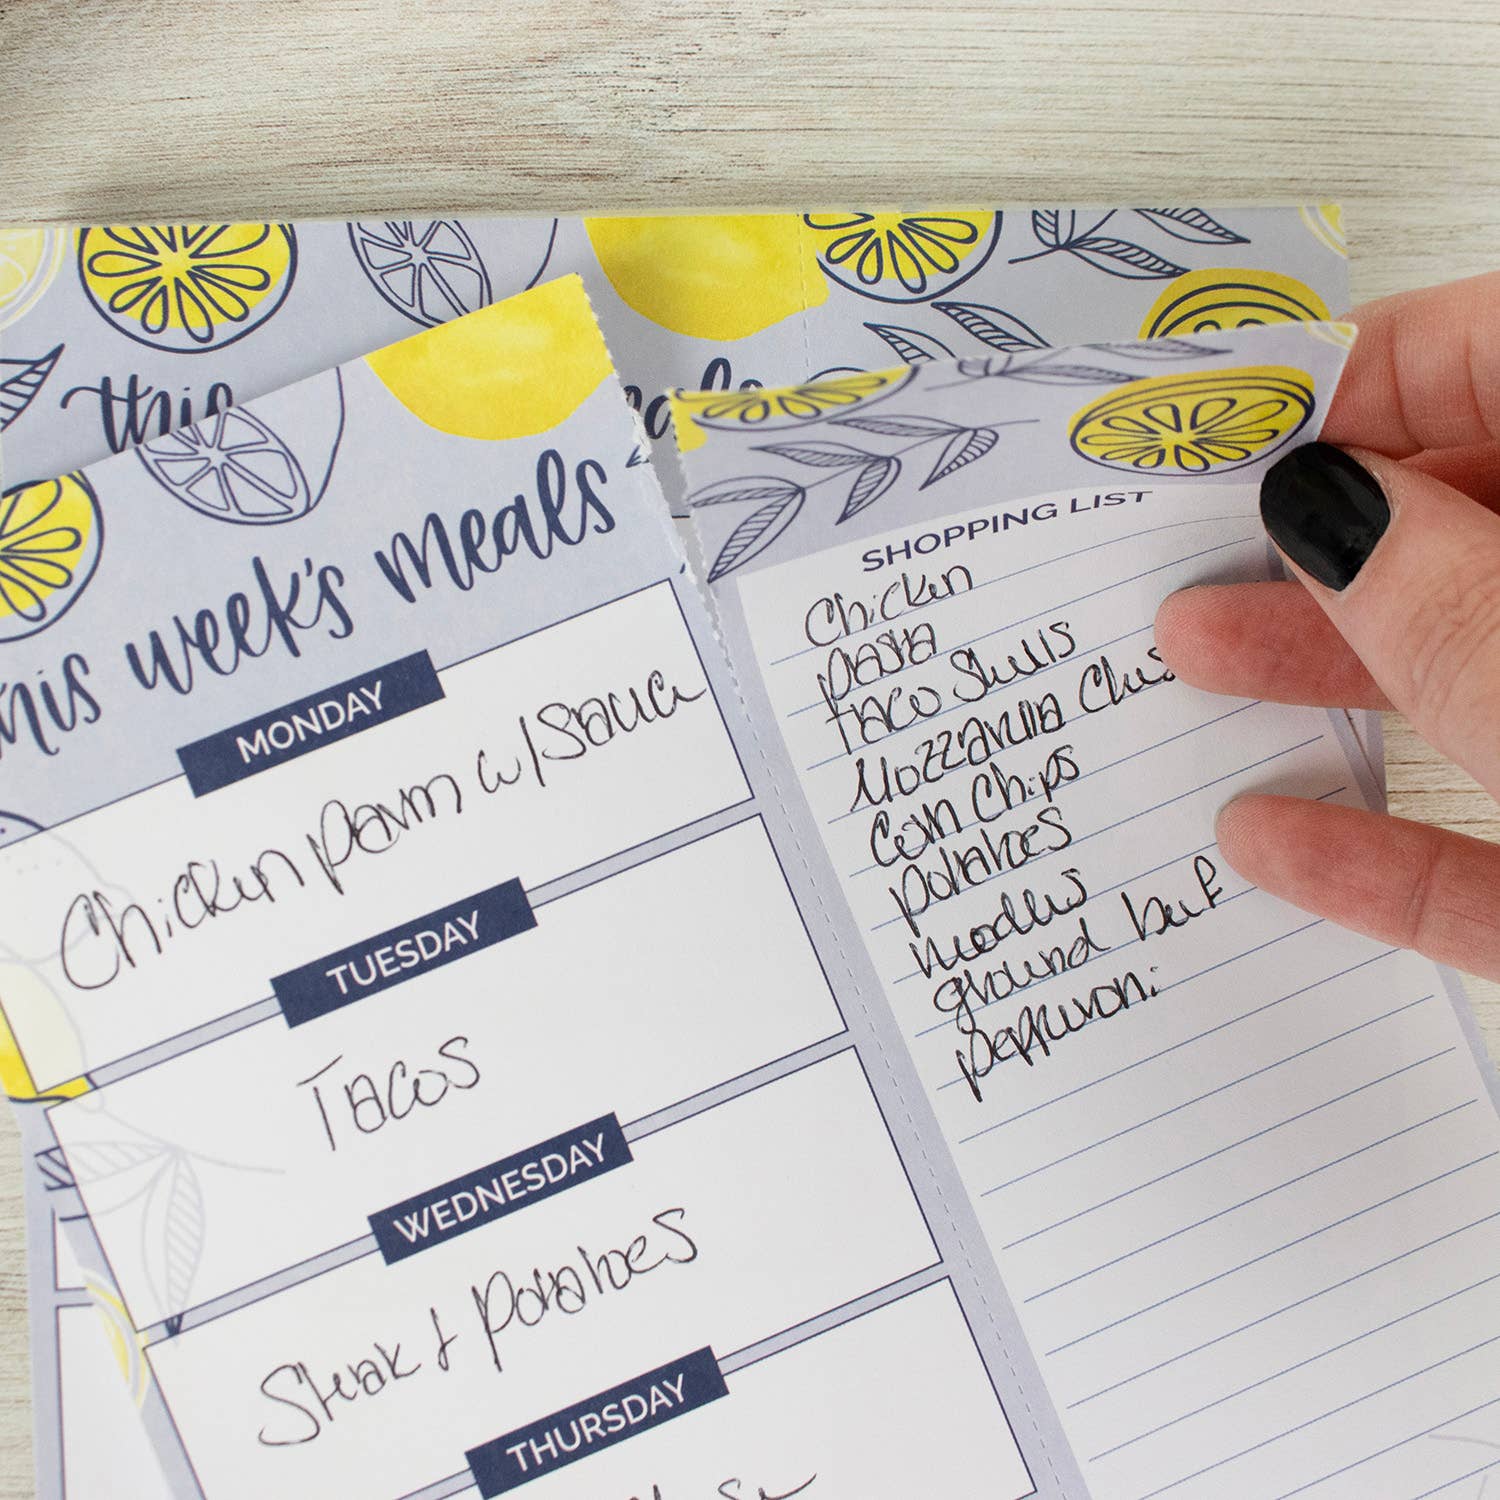 this
meals
this week's meals
MONDAY
Chicken parm w/ sauce
TUESDAY
Tacos
WEDNESDAY
Steak & potatoes
THURSDAY
SHOPPING LIST
Chicken
pasta
taco shells
Mozzarella
Corn Chips
potatoes
noodles
ground beef
pepperoni